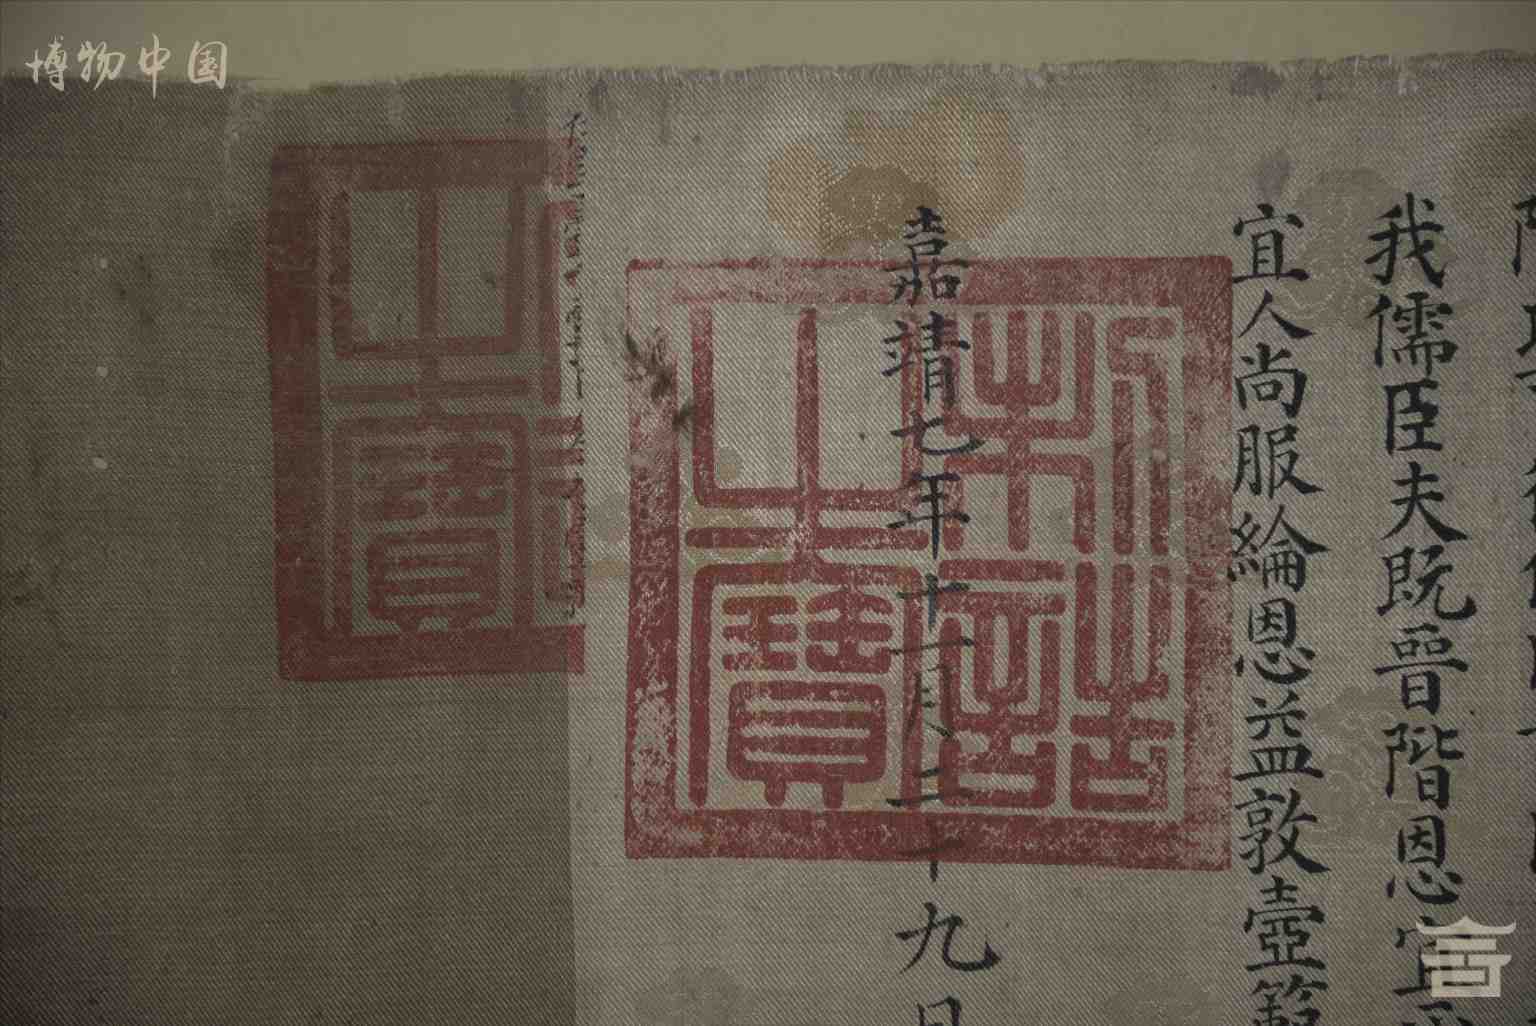 我儒臣夫既晉階恩宜
宜人尚服綸恩益敦壼範
嘉靖七年十一月二十九日
制誥之寶
之寶
博物中国